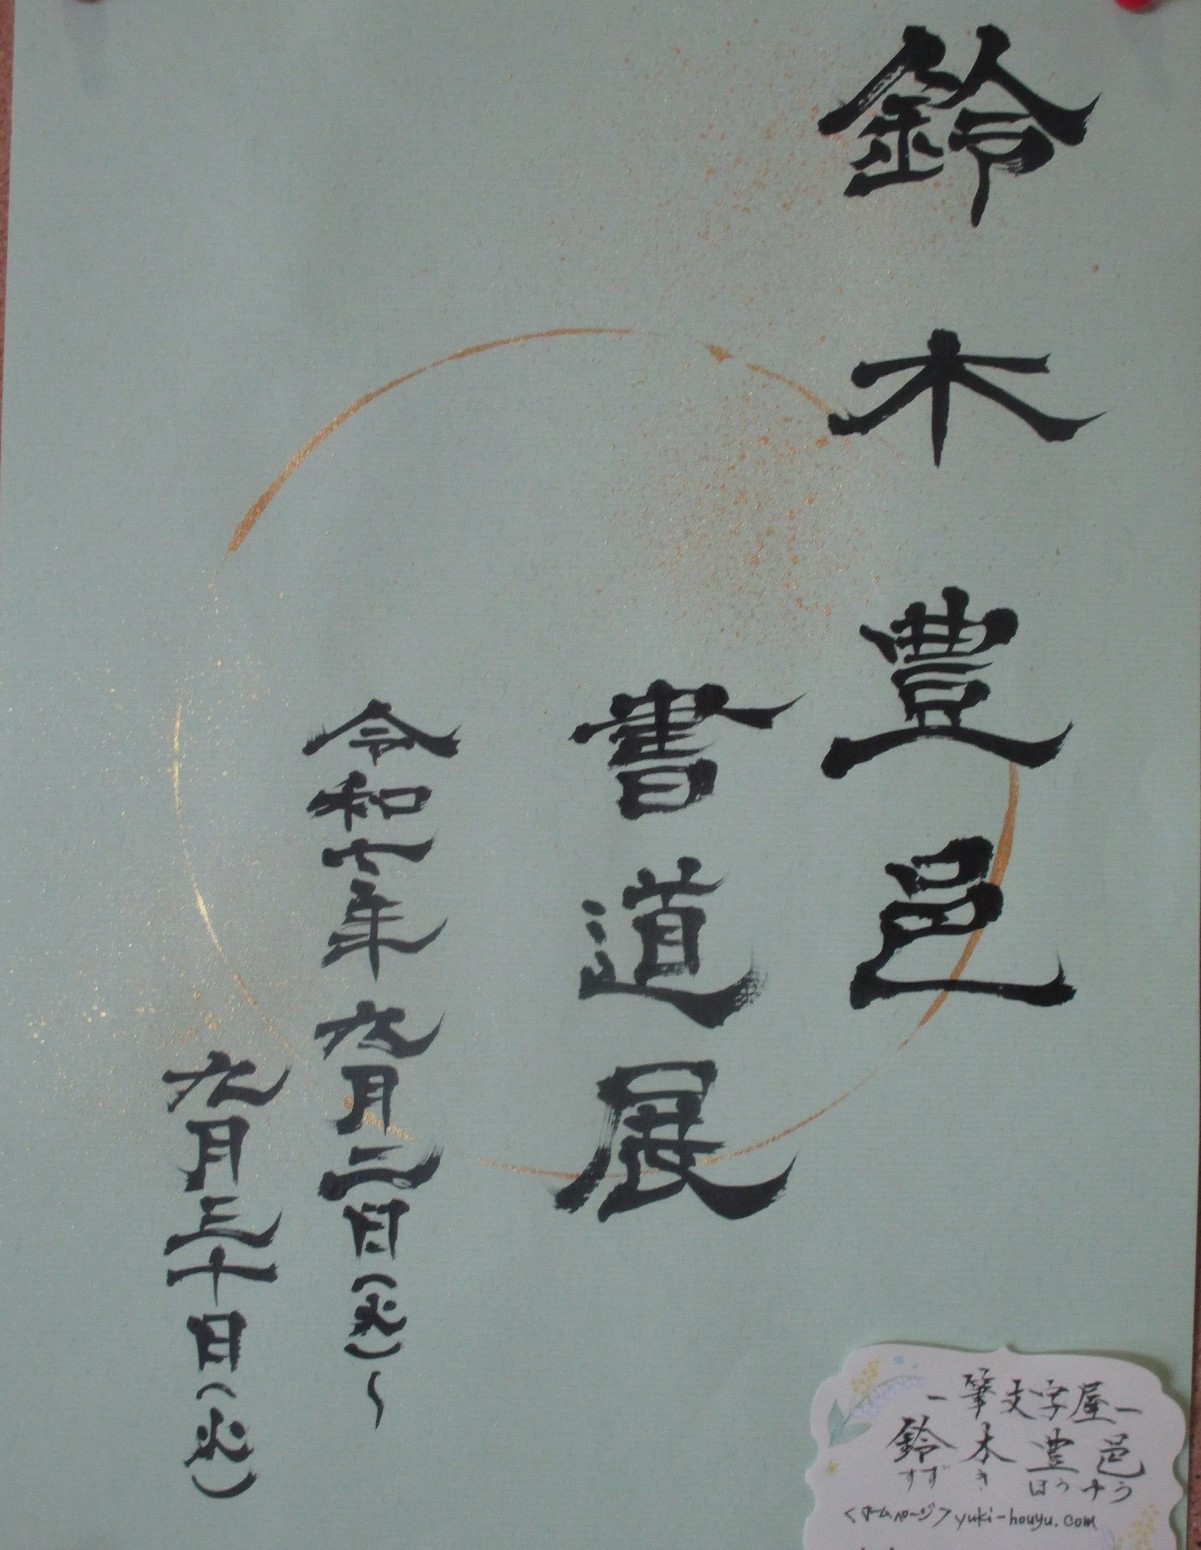 鈴木豊邑
書道展
令和七年 九月二日(火)～
九月三十日(火)
-筆文字屋-
鈴木 豊邑
すず き ほう ゆう
<ホームページ>yuki-houyu.com